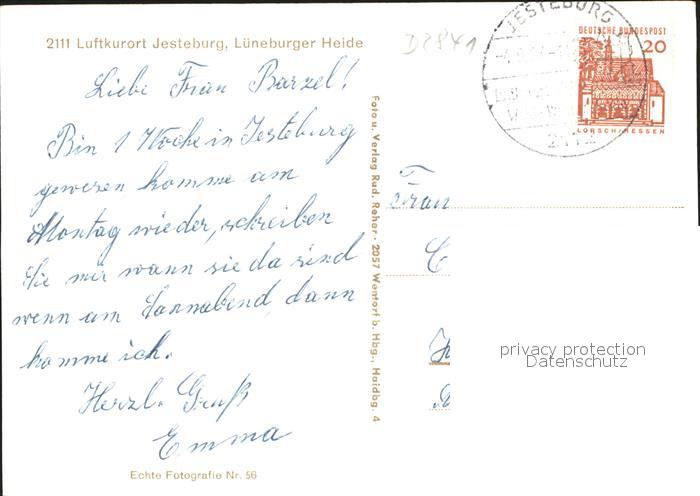 2111 Luftkurort Jesteburg, Lüneburger Heide
D2841
Liebe Frau Barzel!
Bin 1 Woche in Jesteburg
gewesen komme am
Montag wieder, schreiben
Sie mir wann sie da sind
wenn am Sonnabend, dann
komme ich.
Herzl. Gruß
Emma
Echte Fotografie Nr. 56
Foto u. Verlag Rud. Reher · 2057 Wentorf b. Hbg., Haidbg. 4
JESTEBURG
DEUTSCHE BUNDESPOST
20
LORSCH/HESSEN
Frau
privacy protection
Datenschutz